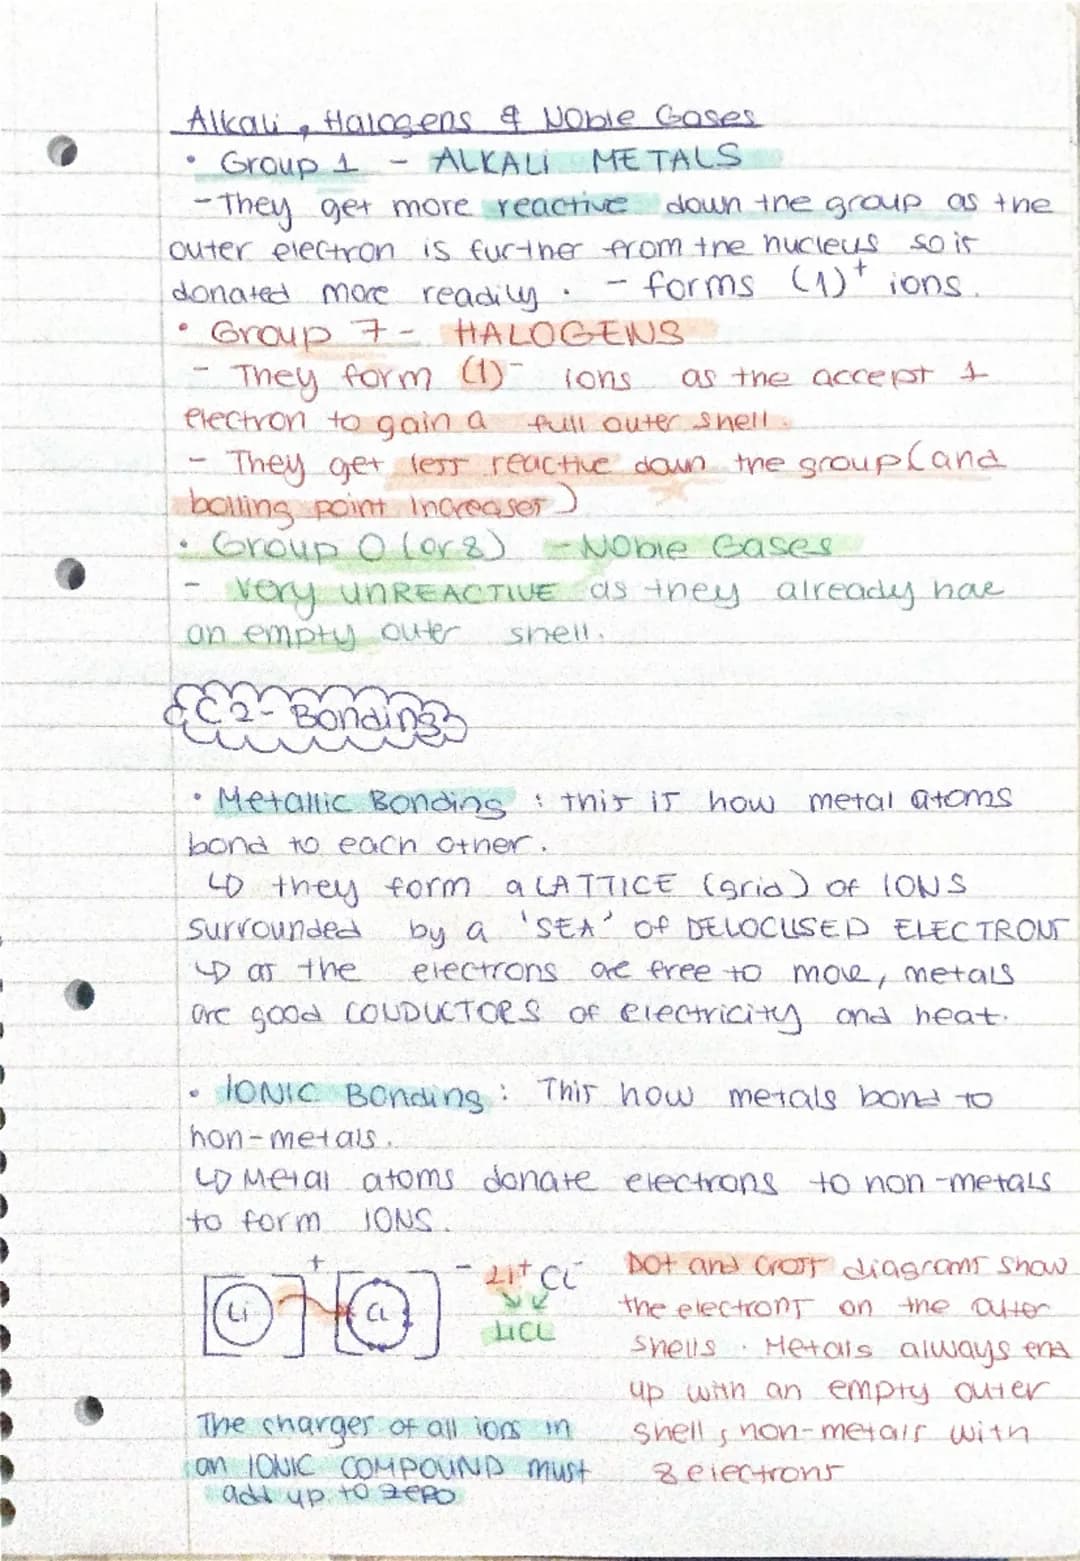 Alkali, Halogens & Noble Gases
• Group 1 - ALKALI METALS
- They get more reactive down the group as the
outer electron is further from the nucleus so is
donated more readily. - forms (1)+ ions.
• Group 7 - HALOGENS
- They form (1)- ions as the accept 1
electron to gain a full outer shell.
- They get less reactive down the group (and
boiling point increases)
• Group 0 (or 8) - Noble Gases
- very unREACTIVE as they already hae
an empty outer shell.
C2 - Bonding
• Metallic Bonding : this is how metal atoms
bond to each other.
↳ they form a LATTICE (grid) of IONS
surrounded by a 'SEA' of DELOCUSED ELECTRONS
↳ as the electrons are free to move, metals
are good CONDUCTORS of electricity and heat.
• IONIC Bonding : This how metals bond to
non-metals.
↳ Metal atoms donate electrons to non-metals
to form IONS.
Li + Cl -
Li+ Cl-
LiCl
DOt and Cross diagrams show
the electrons on the outer
shells. Metals always end
up with an empty outer
shell, non-metals with
8 electrons
The charges of all ions in
an IONIC COMPOUND must
add up to zero